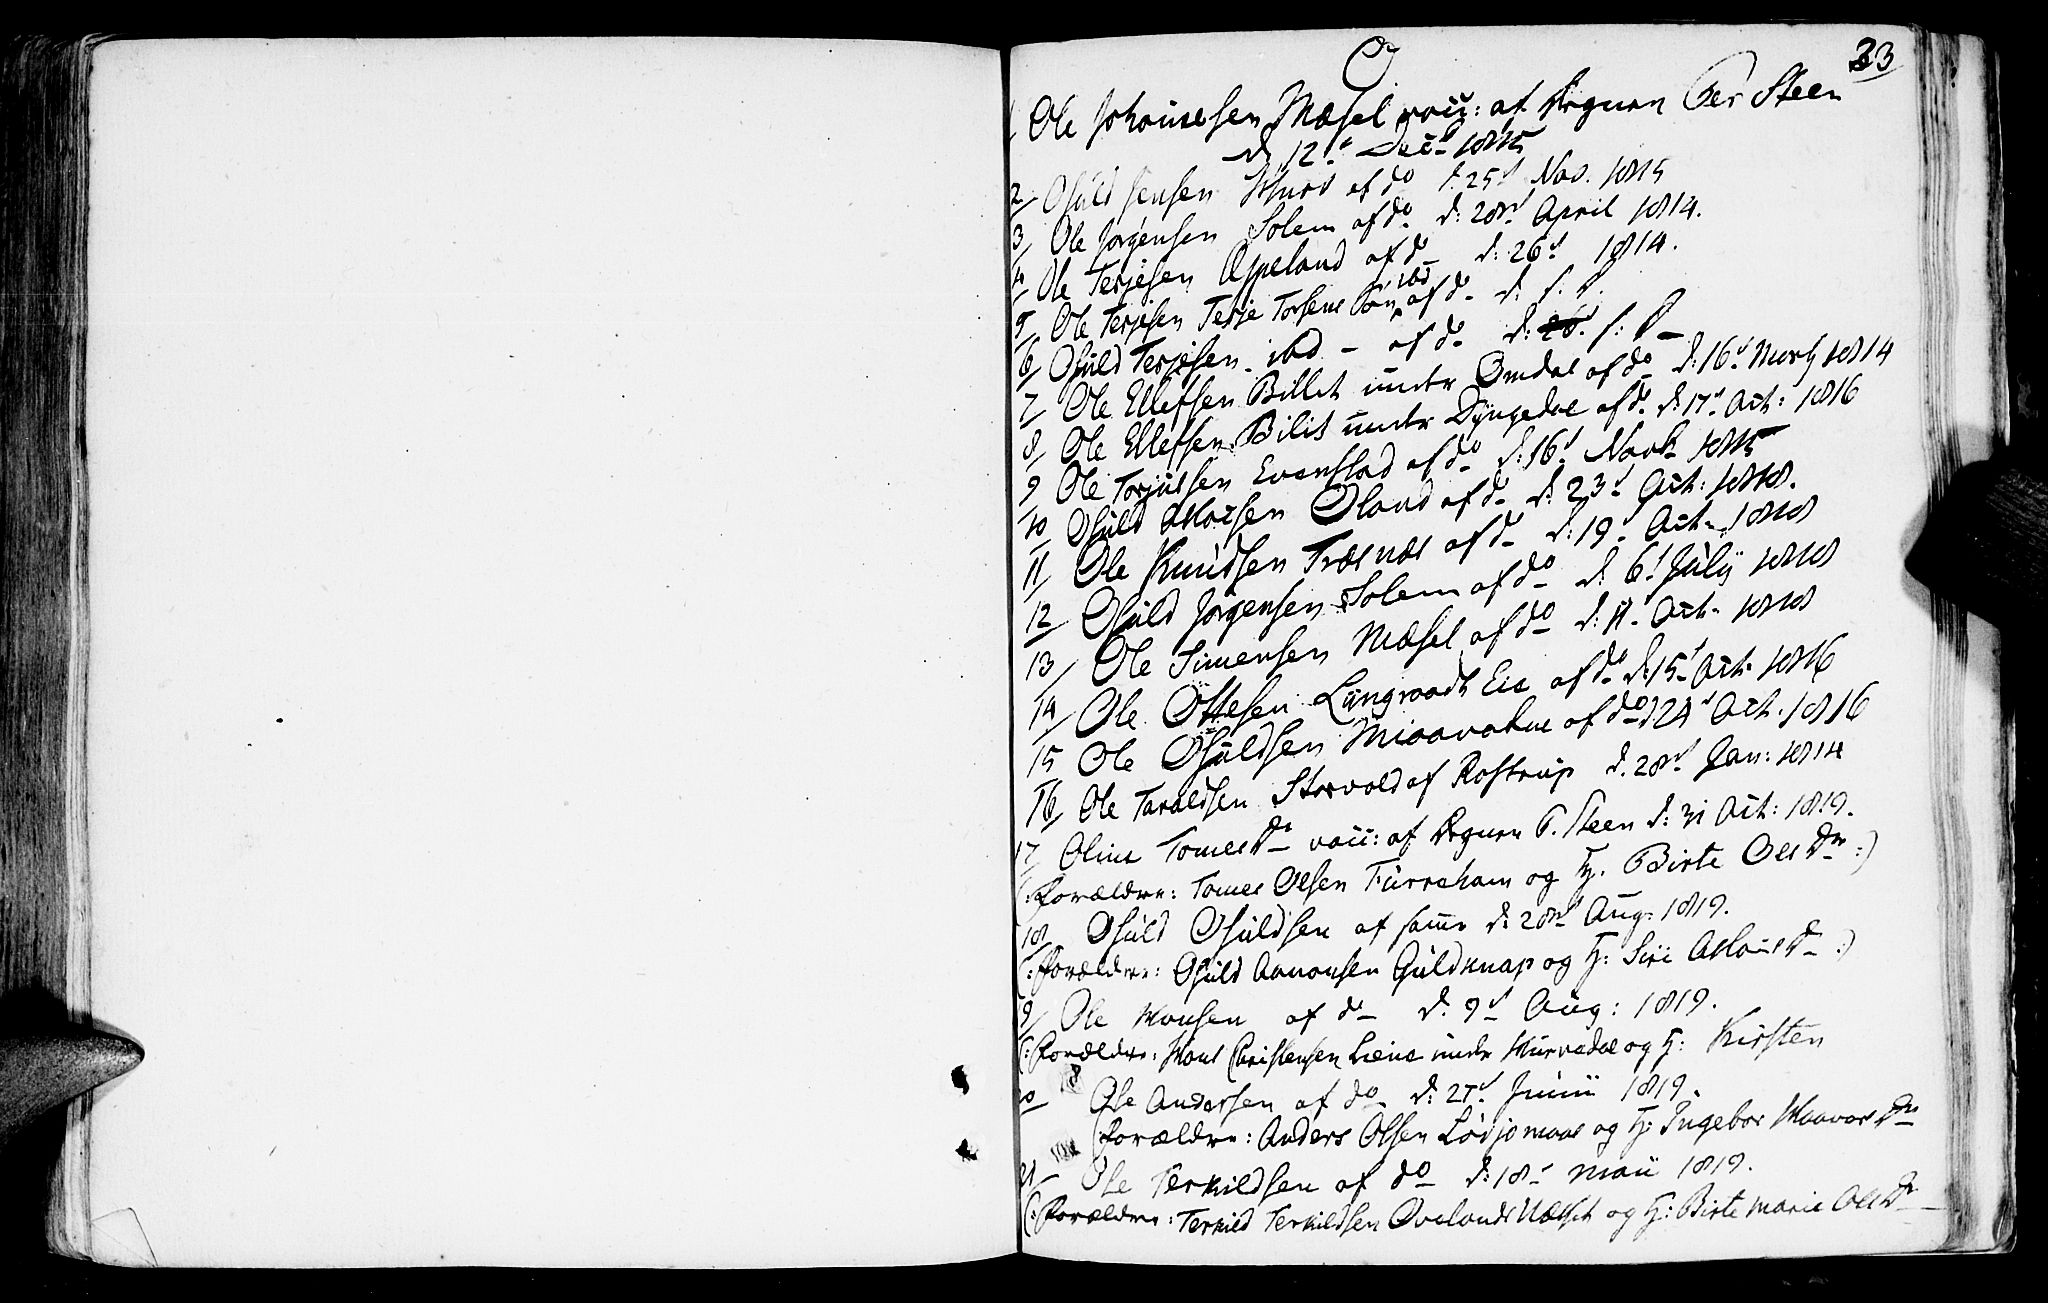 33
O
1/ Ole Johannesen Mæsel vacc: af Degnen Per Steen
d: 12t Decb 1815
2/ Osuld Jensen af do d. 25t Nov. 1815
3/ Ole Jørgensen Solem af do d: 28d April 1814.
4/ Ole Terjesen Øpeland af do d: 26t 1814.
5/ Ole Terjesen Terje Torsens Søn ibd af do d. s. D.
6/ Osuld Terjesen ibd - af do d: s: D
7/ Ole Ellefsen Billet under Omdal af do d: 16t Marty 1814
8/ Ole Ellefsen Bilit under Dyngedal af do d: 17t Oct: 1816
9/ Ole Torjussen Evenstad af do d: 16t Novb 1815
10 Osuld Øland af do d: 23d Oct: 1818.
11/ Ole Knudsen Træsnæs af do d: 19t Oct. 1818
12 Osuld Jørgensen Solem af do d. 6t July 1818
13/ Ole Simensen Mæsel af do d: 11- Oct. 1818
14/ Ole Ottesen Lyngroodt Eie af do d: 15t Oct. 1816
15 Ole Osuldsen Miaavatne af do d 24t Oct. 1816
16/ Ole Taraldsen Storvold af Rostrup d. 28d Jan: 1814
17 Oline Tomesdr vacc: af Degnen P. Steen d: 31 Oct: 1819.
(: Forældre: Tomes Olsen Furreham og H. Birte Olesdr :)
18/ Osuld Osuldsen af samme d: 28d Aug: 1819.
(: Forældre: Osuld Aanonsen Guldknap og H: Siri :)
9/ Ole Monsen af do d: 9t Aug: 1819.
(: Forældre: Mons Christensen Leine under og H: Kirsten
20 Ole Andersen af do d: 27t Junii 1819.
Forældre: Anders Olsen Lødjomoas og H: Ingebor Haavorsdr
21 Ole Terkildsen af do d: 18t Maii 1819.
(: Forældre: Terkild Terkildsen Øvelands Næsset og H: Birte Marie Olsdr